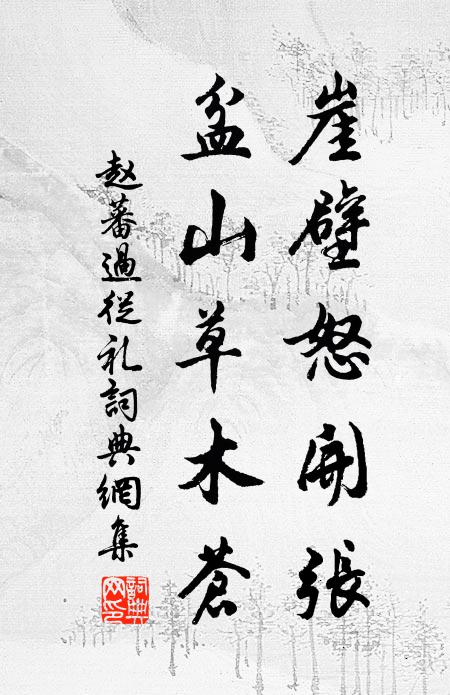 崖壁怒開張
盆山草木蒼
赵蕃過從礼詞典網集
詞典網印